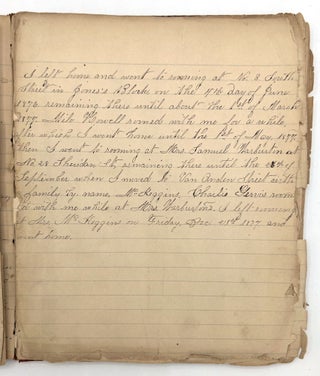 I left home and went to rooming at No. 3 South
Street in Jones's Block on the 7th day of June
1876 remaining there until about the 1st of March
1877. Milo Powell roomed with me for a while
after which I went home until the 1st of May 1877
then I went to rooming at Mrs Samuel Warburton at
No. 28 Sheridan St. remaining there until the of
September when I moved to Van Anden Street with
a family by name, Mc Keggins, Charles Jervis room
ed with me while at Mrs. Warburtons. I left rooming
at Mrs. Mc Keggins on Friday, Dec 21st 1877 and
went home.